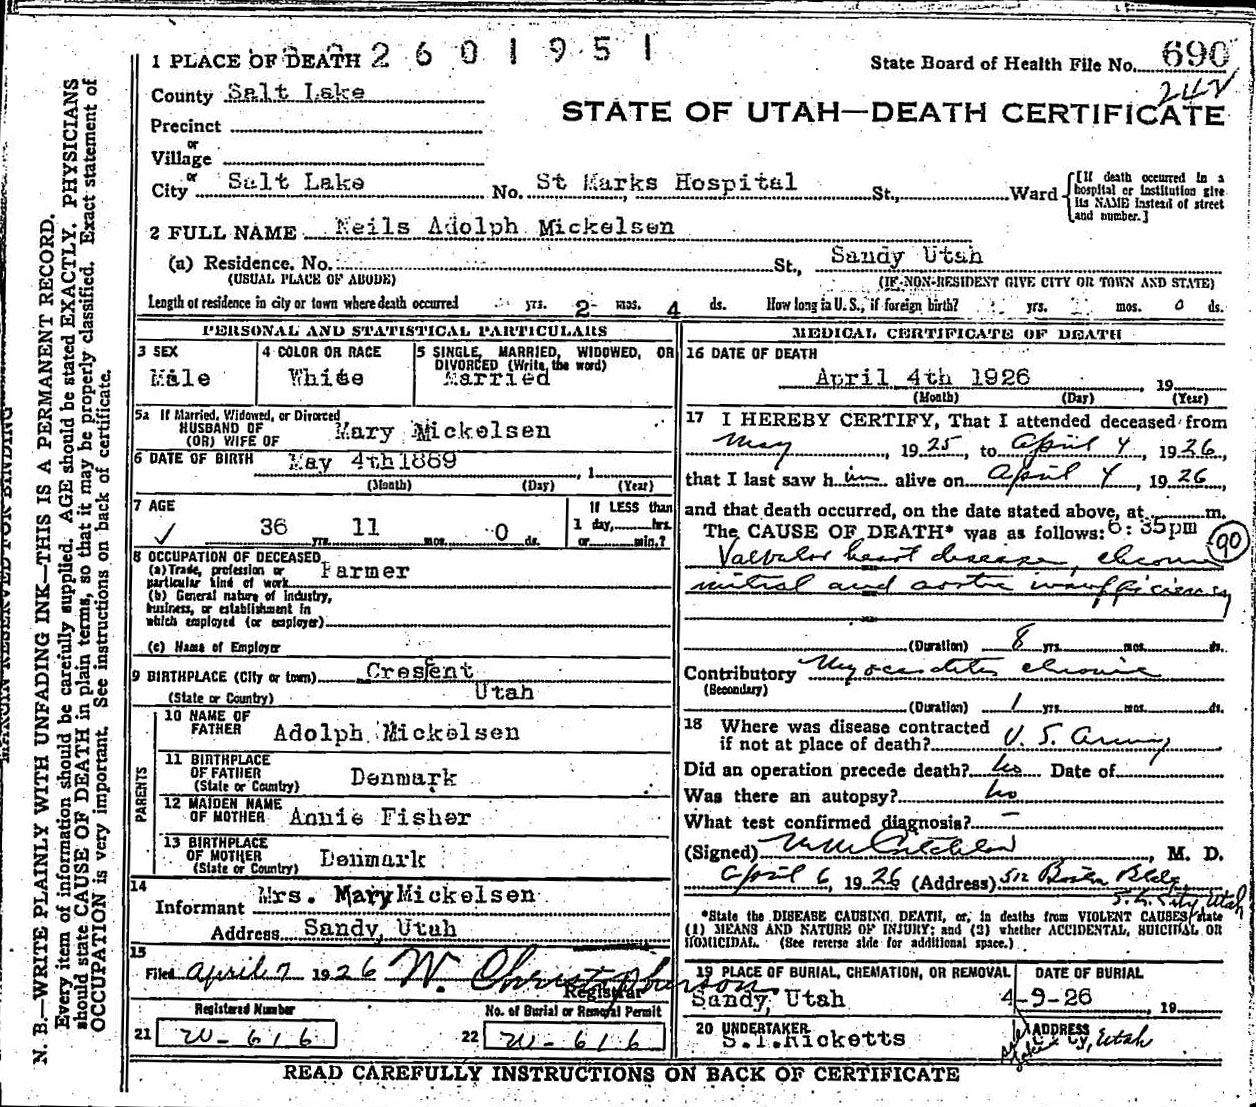 1 PLACE OF DEATH 2 6 0 1 9 5 1
State Board of Health File No. 690
242
County Salt Lake
STATE OF UTAH—DEATH CERTIFICATE
Precinct
or
Village
or
City Salt Lake No. St Marks Hospital St., Ward
[If death occurred in a hospital or institution give its NAME instead of street and number.]
2 FULL NAME Neils Adolph Mickelsen
(a) Residence. No. St., Sandy Utah
(USUAL PLACE OF ABODE) (IF NON-RESIDENT GIVE CITY OR TOWN AND STATE)
Length of residence in city or town where death occurred yrs. 2 mos. 4 ds. How long in U. S., if foreign birth? yrs. mos. 0 ds.
PERSONAL AND STATISTICAL PARTICULARS
3 SEX
Male
4 COLOR OR RACE
White
5 SINGLE, MARRIED, WIDOWED, OR
DIVORCED (Write the word)
Married
5a If Married, Widowed, or Divorced
HUSBAND OF
(OR) WIFE OF Mary Mickelsen
6 DATE OF BIRTH May 4th 1889 , 1
(Month) (Day) (Year)
7 AGE
36 yrs. 11 mos. 0 ds.
If LESS than
1 day, hrs.
or min.?
8 OCCUPATION OF DECEASED
(a) Trade, profession or
particular kind of work Farmer
(b) General nature of industry,
business, or establishment in
which employed (or employer)
(c) Name of Employer
9 BIRTHPLACE (City or town) Cresent
(State or Country) Utah
PARENTS
10 NAME OF
FATHER Adolph Mickelsen
11 BIRTHPLACE
OF FATHER
(State or Country) Denmark
12 MAIDEN NAME
OF MOTHER Annie Fisher
13 BIRTHPLACE
OF MOTHER
(State or Country) Denmark
14
Informant Mrs. Mary Mickelsen
Address Sandy, Utah
15
Filed April 7 1926 W. Christopherson
Registrar
Registered Number
21 W-616
No. of Burial or Removal Permit
22 W-616
MEDICAL CERTIFICATE OF DEATH
16 DATE OF DEATH
April 4th 1926 , 19
(Month) (Day) (Year)
17 I HEREBY CERTIFY, That I attended deceased from
May , 1925, to April 4, 1926,
that I last saw him alive on April 4, 1926,
and that death occurred, on the date stated above, at m.
The CAUSE OF DEATH* was as follows: 6:35pm
90
Valvular heart disease, chronic
mitral and aortic insufficiency
(Duration) 8 yrs. mos. ds.
Contributory Myocarditis chronic
(Secondary)
(Duration) 1 yrs. mos. ds.
18 Where was disease contracted
if not at place of death? U. S. Army
Did an operation precede death? No Date of
Was there an autopsy? No
What test confirmed diagnosis? —
(Signed) , M. D.
April 6, 1926 (Address) 512 Boston Bldg.
S. L. City, Utah
*State the DISEASE CAUSING DEATH, or, in deaths from VIOLENT CAUSES, state
(1) MEANS AND NATURE OF INJURY; and (2) whether ACCIDENTAL, SUICIDAL OR
HOMICIDAL. (See reverse side for additional space.)
19 PLACE OF BURIAL, CREMATION, OR REMOVAL
Sandy, Utah
DATE OF BURIAL
4-9-26 19
20 UNDERTAKER
S.I.Ricketts
ADDRESS
Salt Lake Cy, Utah
READ CAREFULLY INSTRUCTIONS ON BACK OF CERTIFICATE
MARGIN RESERVED FOR BINDING
N. B.—WRITE PLAINLY WITH UNFADING INK—THIS IS A PERMANENT RECORD.
Every item of information should be carefully supplied. AGE should be stated EXACTLY. PHYSICIANS
should state CAUSE OF DEATH in plain terms, so that it may be properly classified. Exact statement of
OCCUPATION is very important. See instructions on back of certificate.